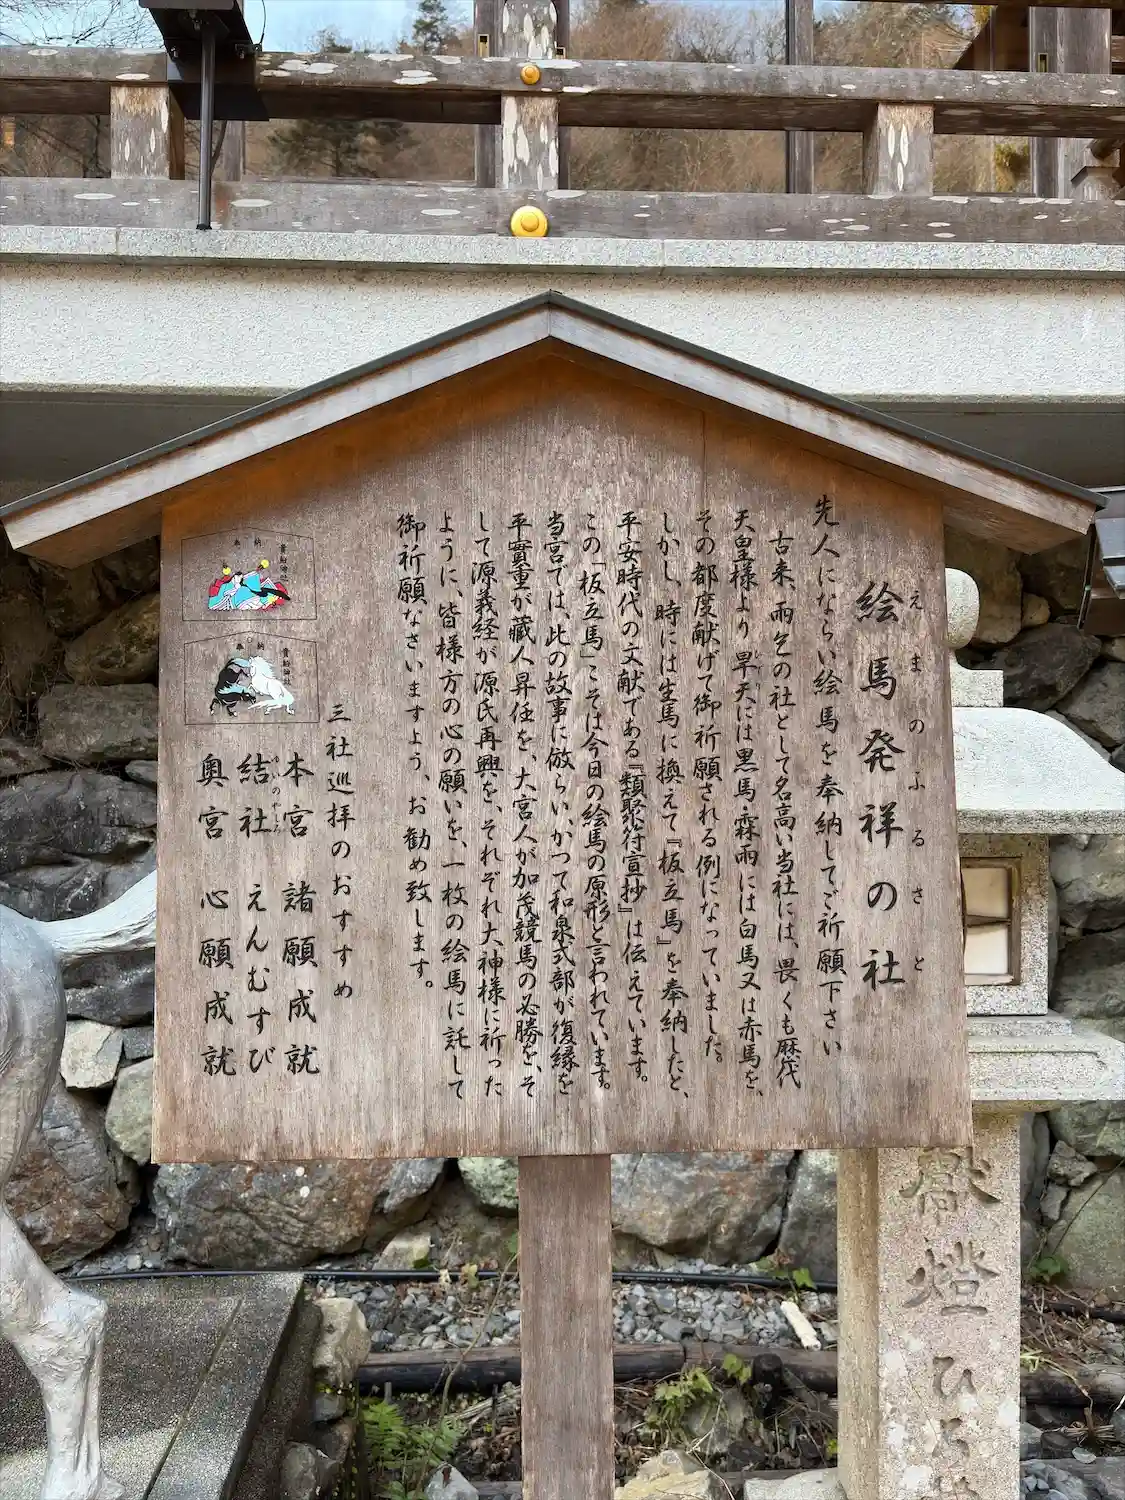 絵馬発祥の社
えまのふるさと
先人にならい絵馬を奉納してご祈願下さい
古来、雨乞の社として名高い当社には、畏くも歴代
天皇様より旱天には黒馬・霖雨には白馬又は赤馬を、
その都度献げて御祈願される例になっていました。
しかし、時には生馬に換えて『板立馬』を奉納したと、
平安時代の文献である『類聚符宣抄』は伝えています。
この「板立馬」こそは今日の絵馬の原形と言われています。
当宮では、此の故事に倣らい、かつて和泉式部が復縁を
平實重が蔵人昇任を、大宮人が加茂競馬の必勝を、そ
して源義経が源氏再興を、それぞれ大神様に祈った
ように、皆様方の心の願いを、一枚の絵馬に託して
御祈願なさいますよう、お勧め致します。
三社巡拝のおすすめ
本宮 諸願成就
結社 えんむすび
ゆいのやしろ
奥宮 心願成就
奉納
貴船神社
奉納
貴船神社
献燈